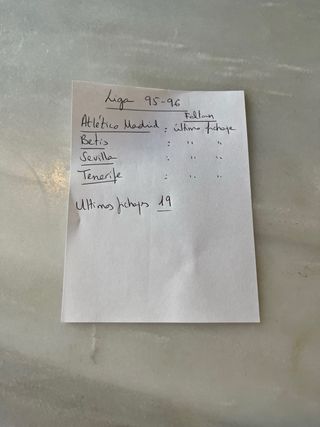 Liga 95-96
Faltan
Atlético Madrid : último fichaje
Betis : " "
Sevilla : " "
Tenerife : " "
Ultimos fichajes 19